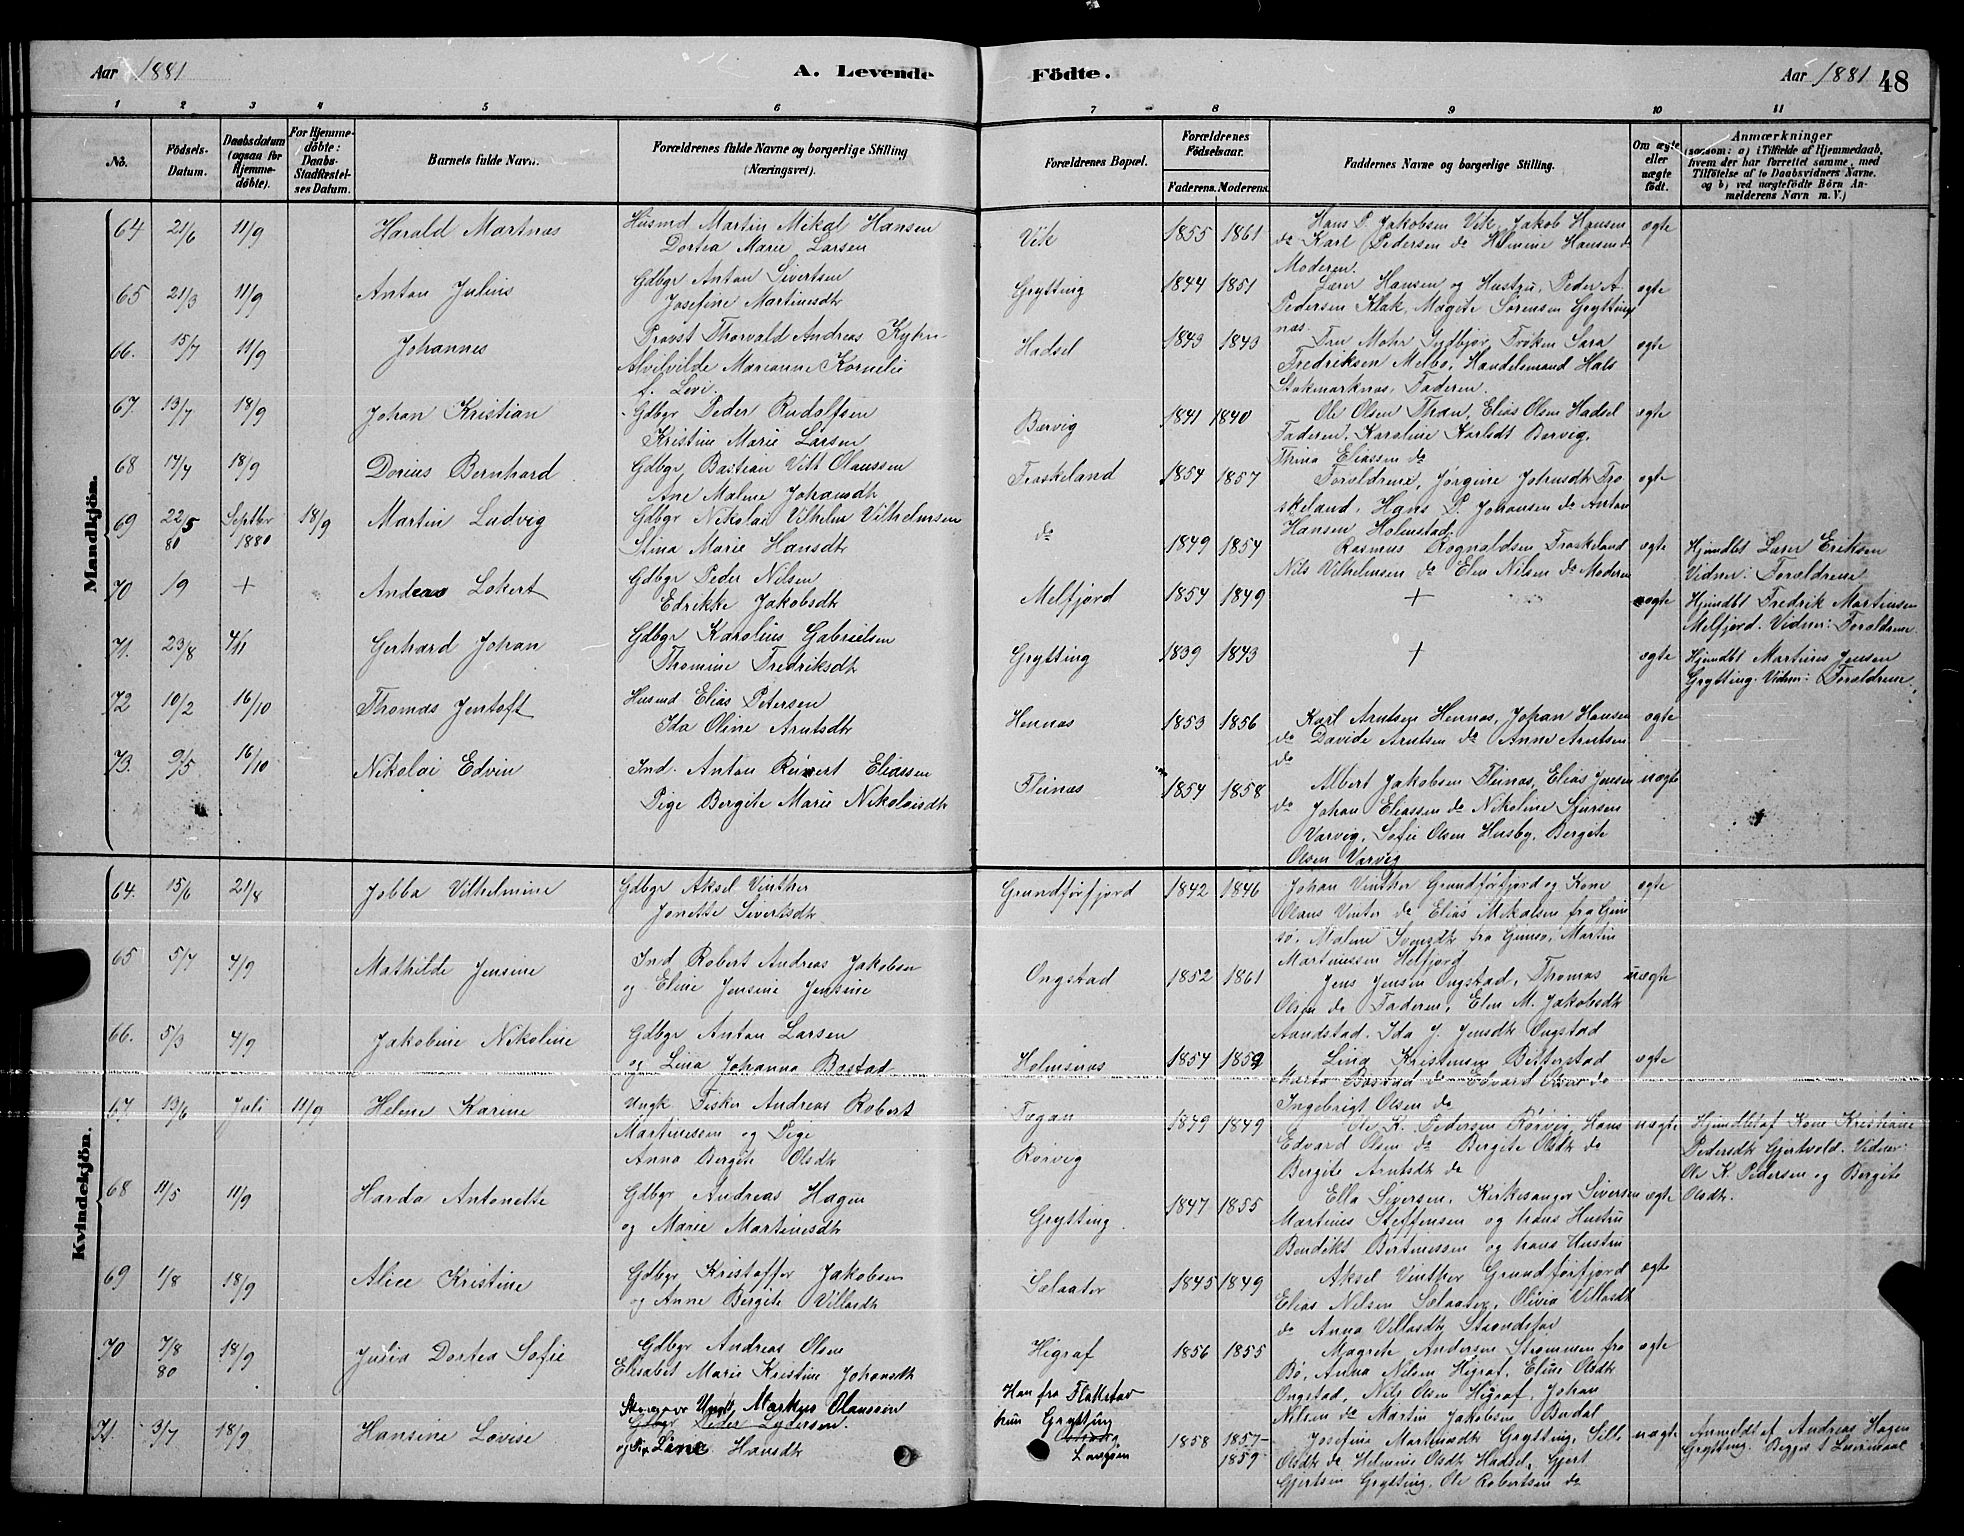 Aar 1881 A. Levende Födte. Aar 1881 48
1 2 3 4 5 6 7 8 9 10 11
No. Födsels-Datum. Daabsdatum (ogsaa for Hjemmedöbte). For Hjemmedöbte: Daabs-Stadfæstelses Datum. Barnets fulde Navn. Forældrenes fulde Navne og borgerlige Stilling (Næringsvei). Forældrenes Bopæl. Forældrenes Födselsaar. Faderens. Moderens. Faddernes Navne og borgerlige Stilling. Om ægte eller uægte födt. Anmærkninger (saasom: a) i Tilfælde af Hjemmedaab, hvem der har forrettet samme, med Tilföielse af to Daabsvidners Navne. og b) ved uægtefödte Börn Anmelderens Navn m. V.)
Mandkjön.
64 21/6 11/9 Harald Martnæs Husmd Martin Mikal Hansen Vik 1855 1861 Hans P. Jakobsen Vik, Jakob Hansen ægte
Dortea Marie Larsen do Karl Pedersen do Helmine Hansen do
Moderen.
65 21/3 11/9 Anton Julius Gdbgr Anton Sivertsen Grytting 1844 1851 Lærer Hansen og Hustru, Peder A. ægte
Josefine Martinusdtr Pedersen Klak, Magite Sørensen Grytting
66. 15/7 11/9 Johannes Provst Thorvald Andreas Kyhn Hadsel 1843 1843 Fru Mohr Sydbjør, Frøken Sara ægte
Alvilvilde Marianne Kornelie Fredriksen Melbo, Handelsmand Hals
f. Levi. Stokmarknæs, Faderen.
67. 13/7 18/9 Johan Kristian Gdbgr Peder Rudolfsen Børvig 1841 1840 Ole Olsen Thøn, Elias Olsen Hadsel ægte
Kristine Marie Larsen Faderen, Karoline Karlsdt Børvig,
Thina Eliassen do
68 17/4 18/9 Dorius Bernhard Gdbgr Bastian Vitt Olaussen Froskeland 1854 1857 Forældrene, Jørgine Johnsdtr Fro- ægte
Ane Malene Johansdtr skeland, Hans P. Johansen do Anton
Hansen Holmstad.
69 22/5 80 Septbr 1880 18/9 Martin Ludvig Gdbgr Nikolai Vilhelm Vilhelmsen do 1849 1854 Rasmus Rognaldsen Froskeland ægte Hjmdbt Lærer Eriksen
Stina Marie Hansdtr Nils Vilhelmsen do Elen Nilsen do Moderen Vidner: Forældrene
70 19 + Andreas Lokert Gdbgr Peder Nilsen Melfjord 1854 1849 + ægte Hjmdbt Fredrik Martinsen
Edrikke Jakobsdtr Melfjord. Vidner: Forældrene
71. 23/8 4/11 Gerhard Johan Gdbgr Karolius Gabrielsen Grytting 1839 1843 + ægte Hjmdbt Martinus Jensen
Thomine Fredriksdtr Grytting. Vidner: Forældrene.
72 10/2 16/10 Thomas Jentoft Husmd Elias Petersen Hennæs 1853 1856 Karl Arntsen Hennæs, Johan Hansen ægte
Ida Oline Arntsdtr do Davide Arntsen do Anne Arntsen
do
73. 9/5 16/10 Nikolai Edvin Ind. Anton Reinert Eliassen Fleinæs 1854 1858 Albert Jakobsen Fleinæs, Elias Jensen uægte
Pige Bergite Marie Nikolaisdtr do Johan Eliassen do Nikoline Sjursen
Varvig, Sofie Olsen Husby, Bergite
Olsen Varvig
Kvindekjön.
64. 15/6 21/8 Jobba Vilhelmine Gdbgr Aksel Vinther Grundførfjord 1842 1846 Johan Vinther Grundførfjord og Kone ægte
Jonette Sivertsdtr Olaus Vinter do Elias Mikalsen fra Gim
sø, Malene Svensdtr fra Gimsø, Martin
Martinussen Melfjord
65 5/7 4/9 Mathilde Jensine Ind Robert Andreas Jakobsen Ongstad 1852 1861 Jens Jensen Ongstad, Thomas uægte
og Eline Jensine Jensine Olsen do Faderen, Elen M. Jakobsdtr
Aandstad. Ida J. Jensdtr Ongstad
66. 5/3 4/9 Jakobine Nikoline Gdbgr Anton Larsen Holmsnæs 1854 1852 Lina Kristensen Bitterstad ægte
og Lina Johanna Bostad Marta Bostad do Edvard Olsen do
Ingebrigt Olsen do
67. 13/6 Juli 11/9 Helene Karine Ungk. Fisker Andreas Robert Tøgan 1849 1849 Ole K. Pedersen Rørvig, Hans uægte Hjmdbt af Kone Kristiane
Martinussen og Pige Rørvig Edvard Olsen do Bergite Olsdtr do Pedersdtr Gjertvold. Vidner:
Anna Bergite Olsdtr Bergite Arntsdtr do Ole K. Pedersen og Bergite
Olsdtr.
68 11/5 11/9 Harda Antonette Gdbgr Andreas Hagen Grytting. 1847 1855 Ella Siversen, Kirkesanger Siversen ægte
og Marie Martinusdtr Martinus Steffensen og hans Hustru
Bendikt Bertinussen og hans Hustru
69 1/8 18/9 Alice Kristine Gdbgr Kristoffer Jakobsen Selaater 1845 1849 Aksel Vinther Grundførfjord ægte
og Anne Bergite Villasdtr Elias Nilsen Selaater, Olivia Villasdtr
do Anna Villasdtr
70 7/8 80 18/9 Julia Dortea Sofie Gdbgr Andreas Olsen Higraf 1856 1855 Magrete Andersen Strømmen fra ægte
Elisabet Marie Kristine Johansdtr Bø, Anna Nilsen Higraf, Eline Olsdtr
Ongstad, Nils Olsen Higraf, Johan
Nilsen do Martin Jakobsen Budal
71. 3/7 18/9 Hansine Lovise Ungk. Markus Olaussen Han fra Flakstad
Gdbgr Peder Lydersen. hun Grytting
og Pige Line Hansdtr Langøen 1858 1857 1859 Josefine Martinusdtr Grytting, Sille uægte Anmeldt af Andreas Hagen
Olsdtr do Helmine Olsdtr Hadsel, Gjert Grytting. Begges 1 Leiermaal
Gjertsen Grytting, Ole Robertsen do